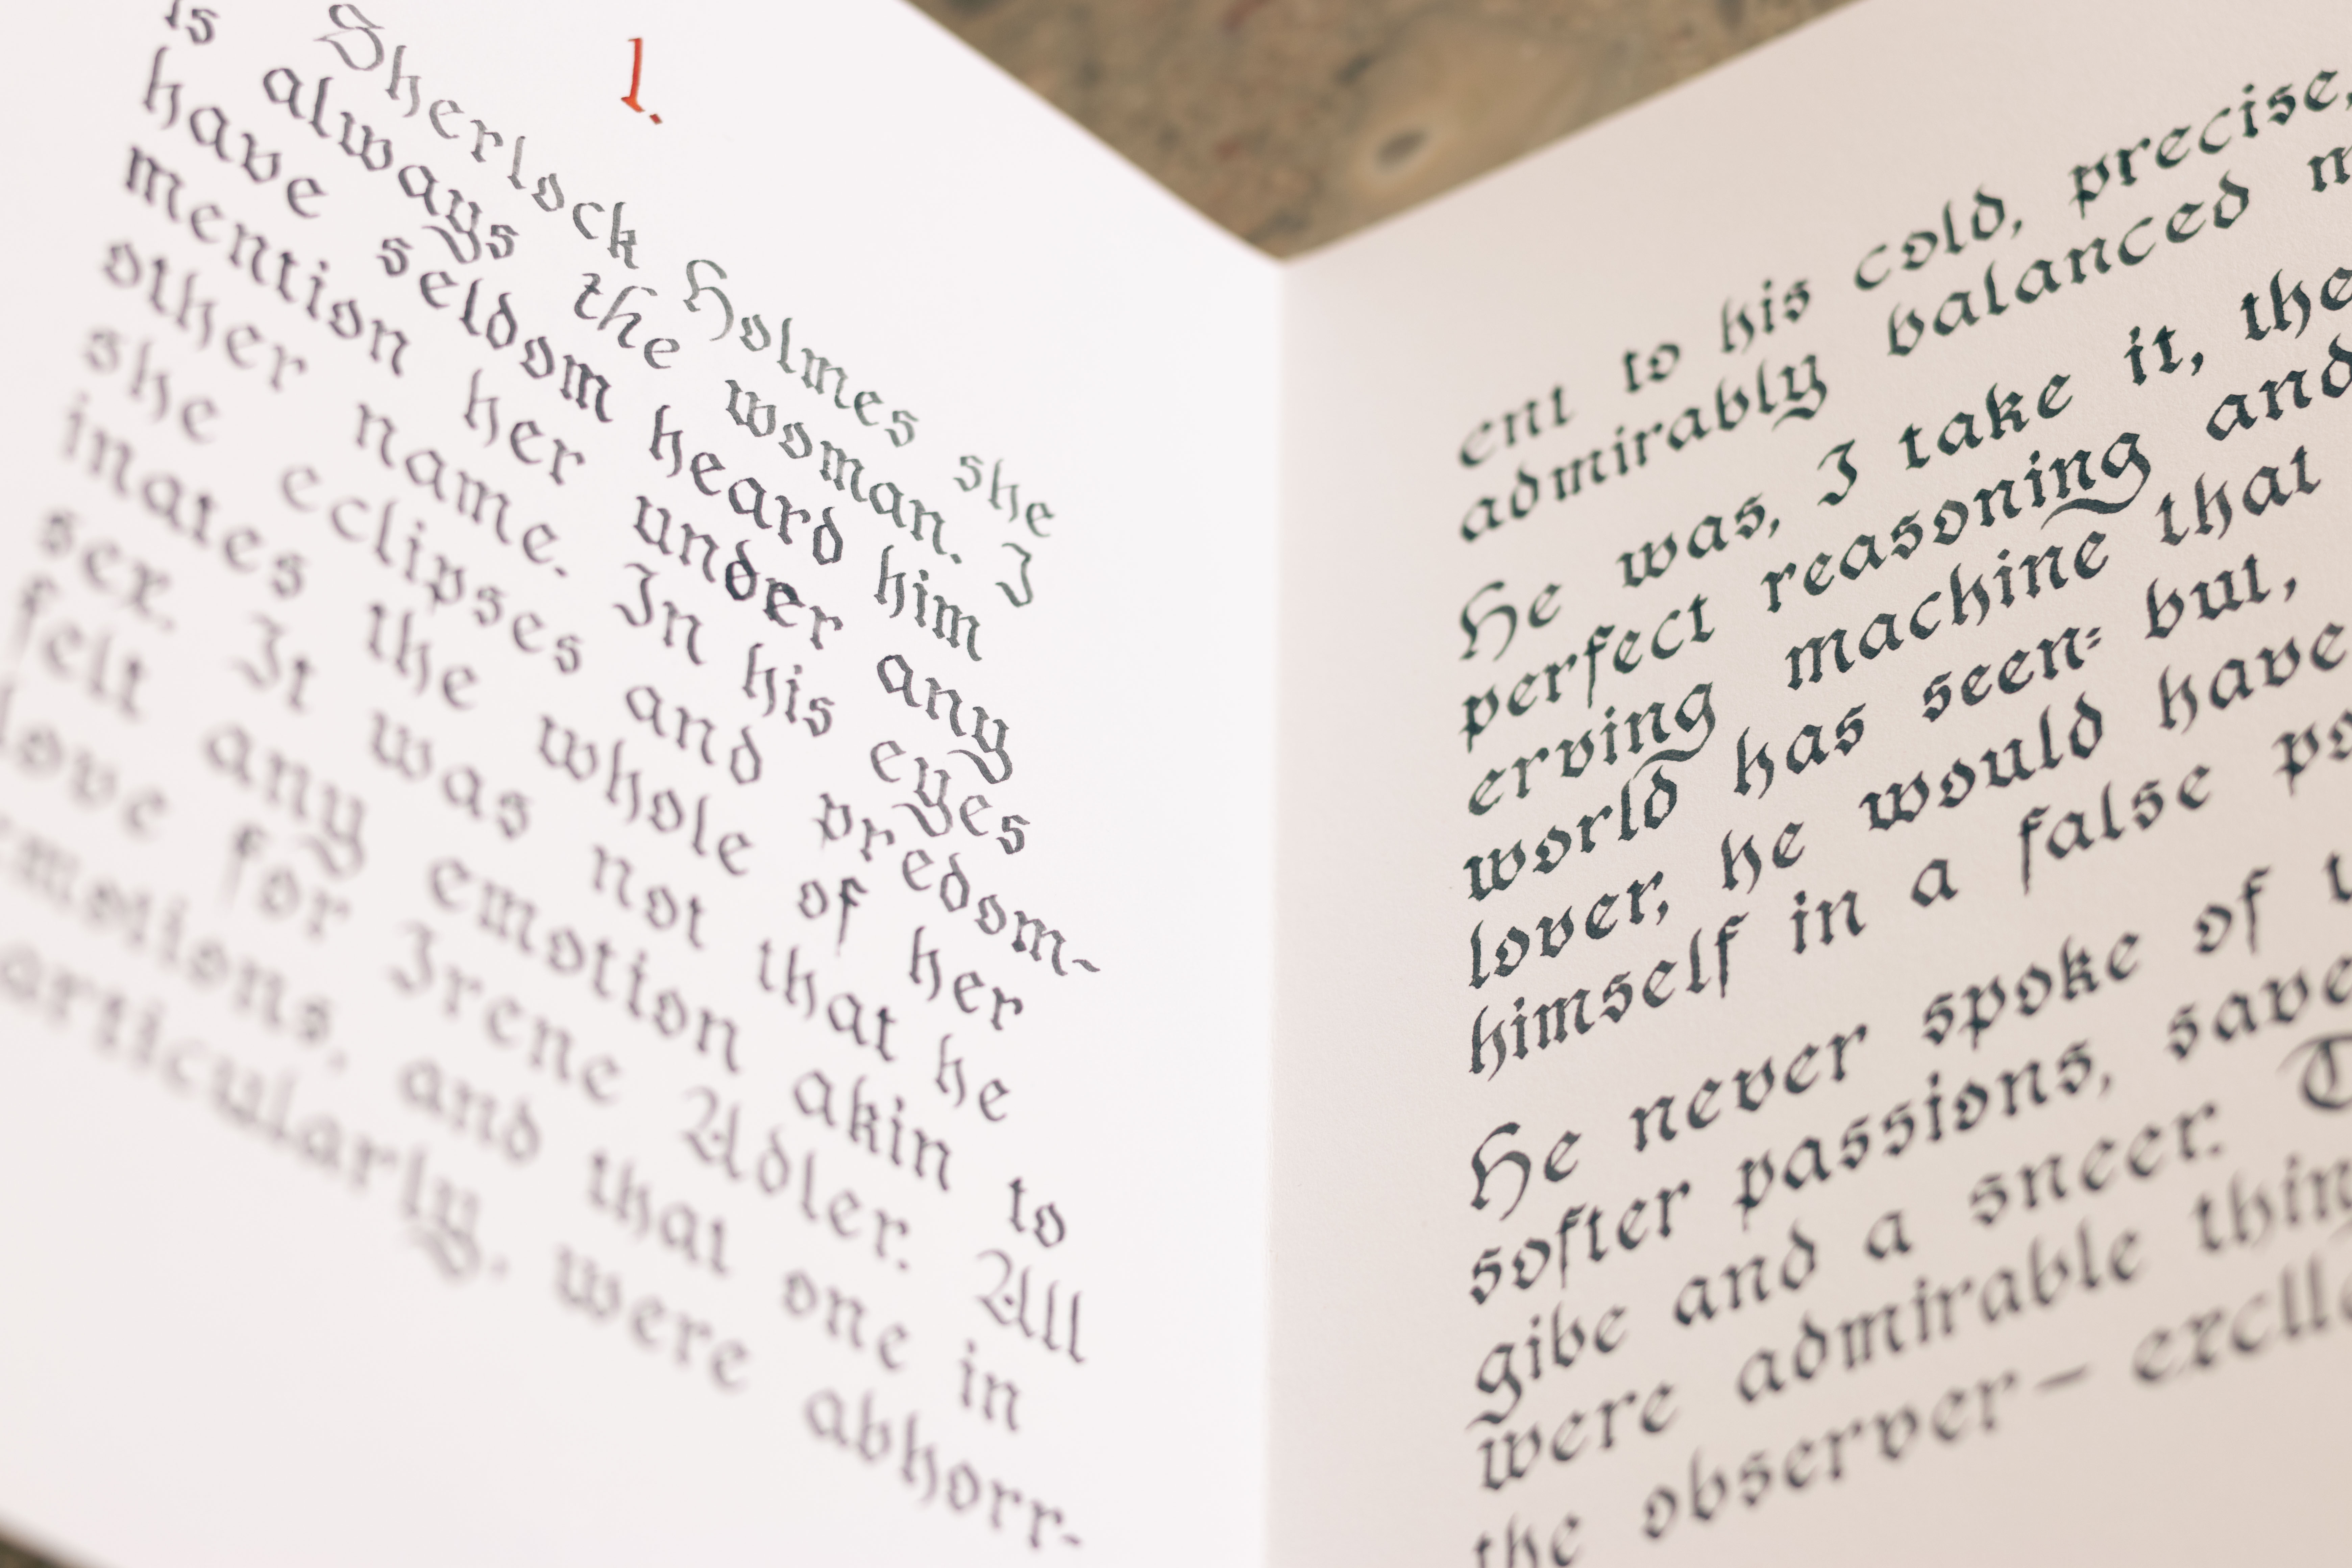 1.
Sherlock Holmes she
is always the woman. I
have seldom heard him
mention her under any
other name. In his eyes
she eclipses and predom-
inates the whole of her
sex. It was not that he
felt any emotion akin to
love for Irene Adler. All
emotions, and that one in
articularly, were abhorr-
ent to his cold, precise,
admirably balanced m
He was, I take it, the
perfect reasoning and
erving machine that
world has seen: but,
lover, he would have
himself in a false po
He never spoke of t
softer passions, save
gibe and a sneer. T
were admirable thin
the observer— excll